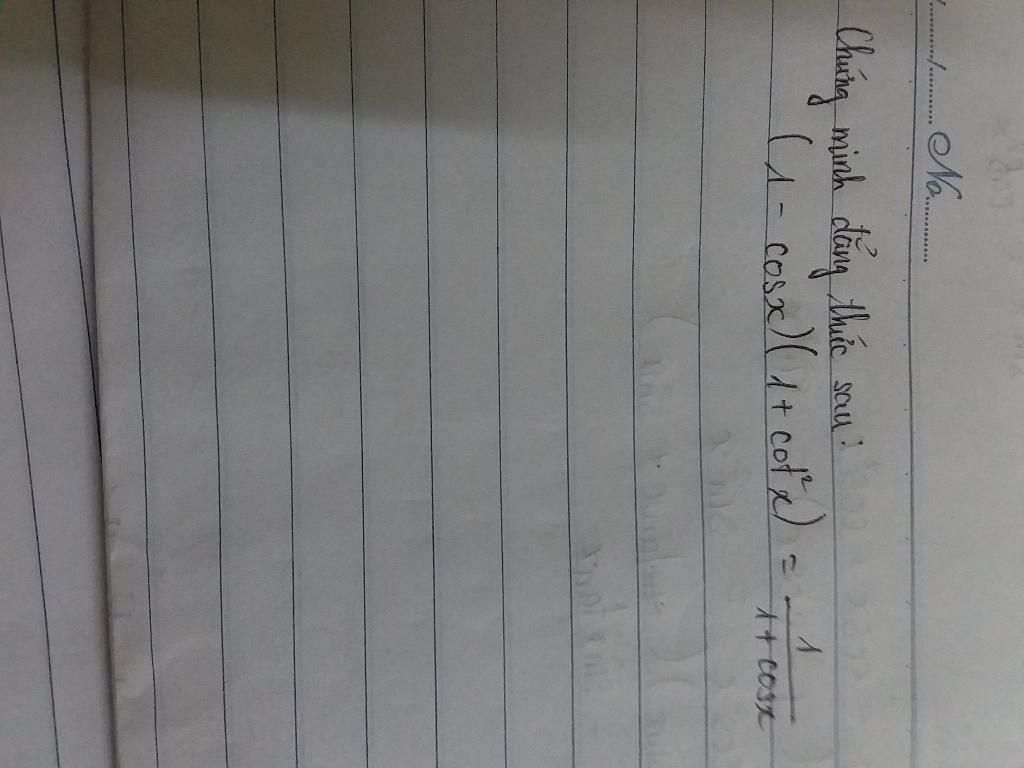 No
Chứng minh đẳng thức sau:
(1 - cosx)(1 + cot²x) = 1/(1 + cosx)